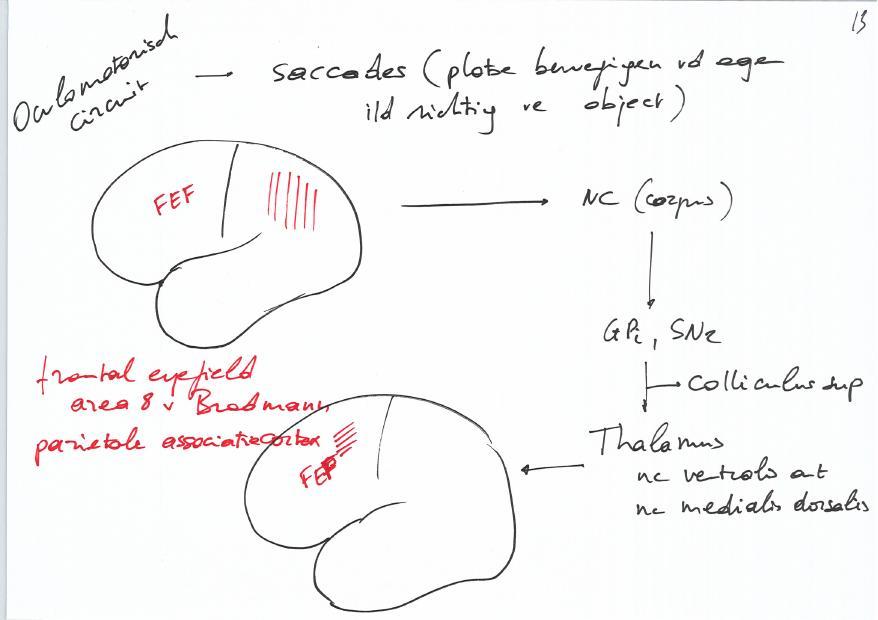 13
Oculomotorisch
circuit
→ saccades (plotse bewegigen vd oge
ild richtig ve object)
FEF
→ NC (corpus)
GPi, SNr
→ colliculus sup
frontal eyefield
area 8 v Brodmann
parietale associatiecortex
Thalamus
nc ventralis ant
nc medialis dorsalis
FEF